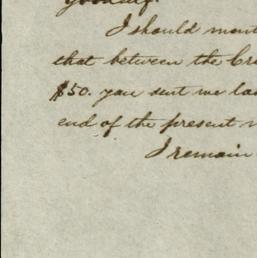 yourself.
I should ment
that between the Cr
$50. you sent me la
end of the present m
I remain